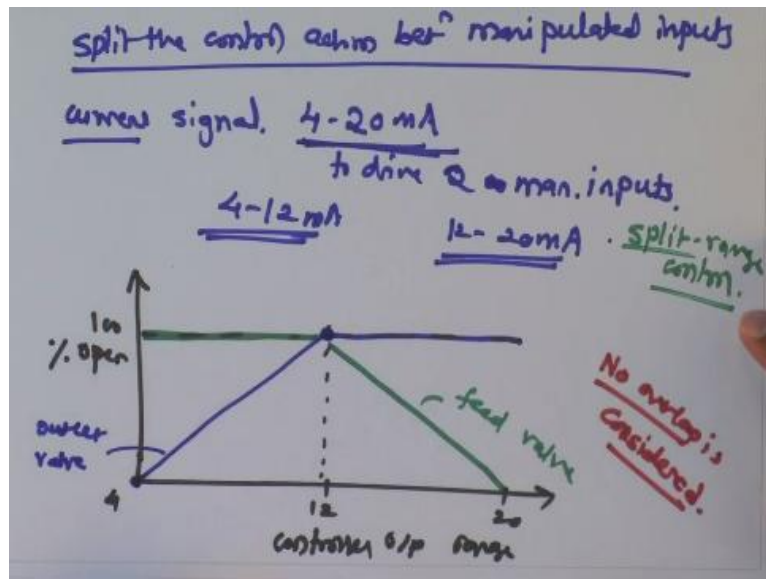 split the control action betⁿ manipulated inputs
current signal. 4-20 mA
to drive 2 man. inputs.
4-12 mA
12-20mA. split-range
control.
100
% open
feed valve
No overlap is
considered.
outlet
valve
4
12
20
controller o/p range